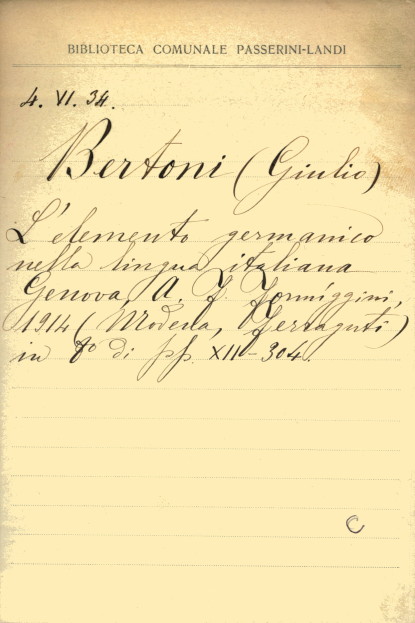 BIBLIOTECA COMUNALE PASSERINI-LANDI
4. VI. 34.
Bertoni (Giulio)
L'elemento germanico
nella lingua italiana
Genova, A. F. Formiggini,
1914 (Modena, Ferraguti)
in 8º di pp. XII-304.
C